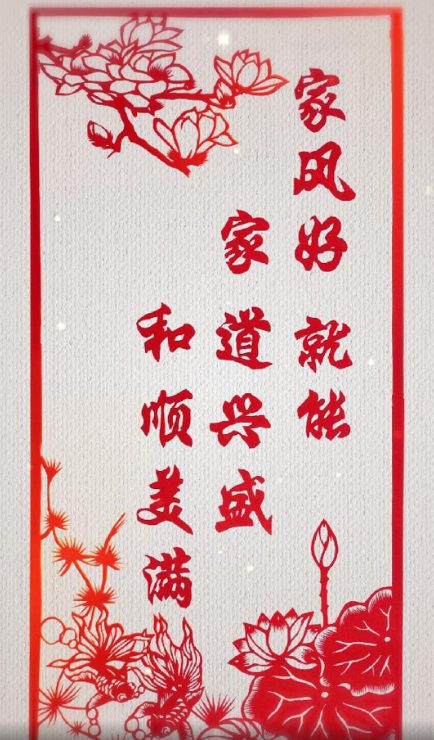 家风好就能
家道兴盛
和顺美满